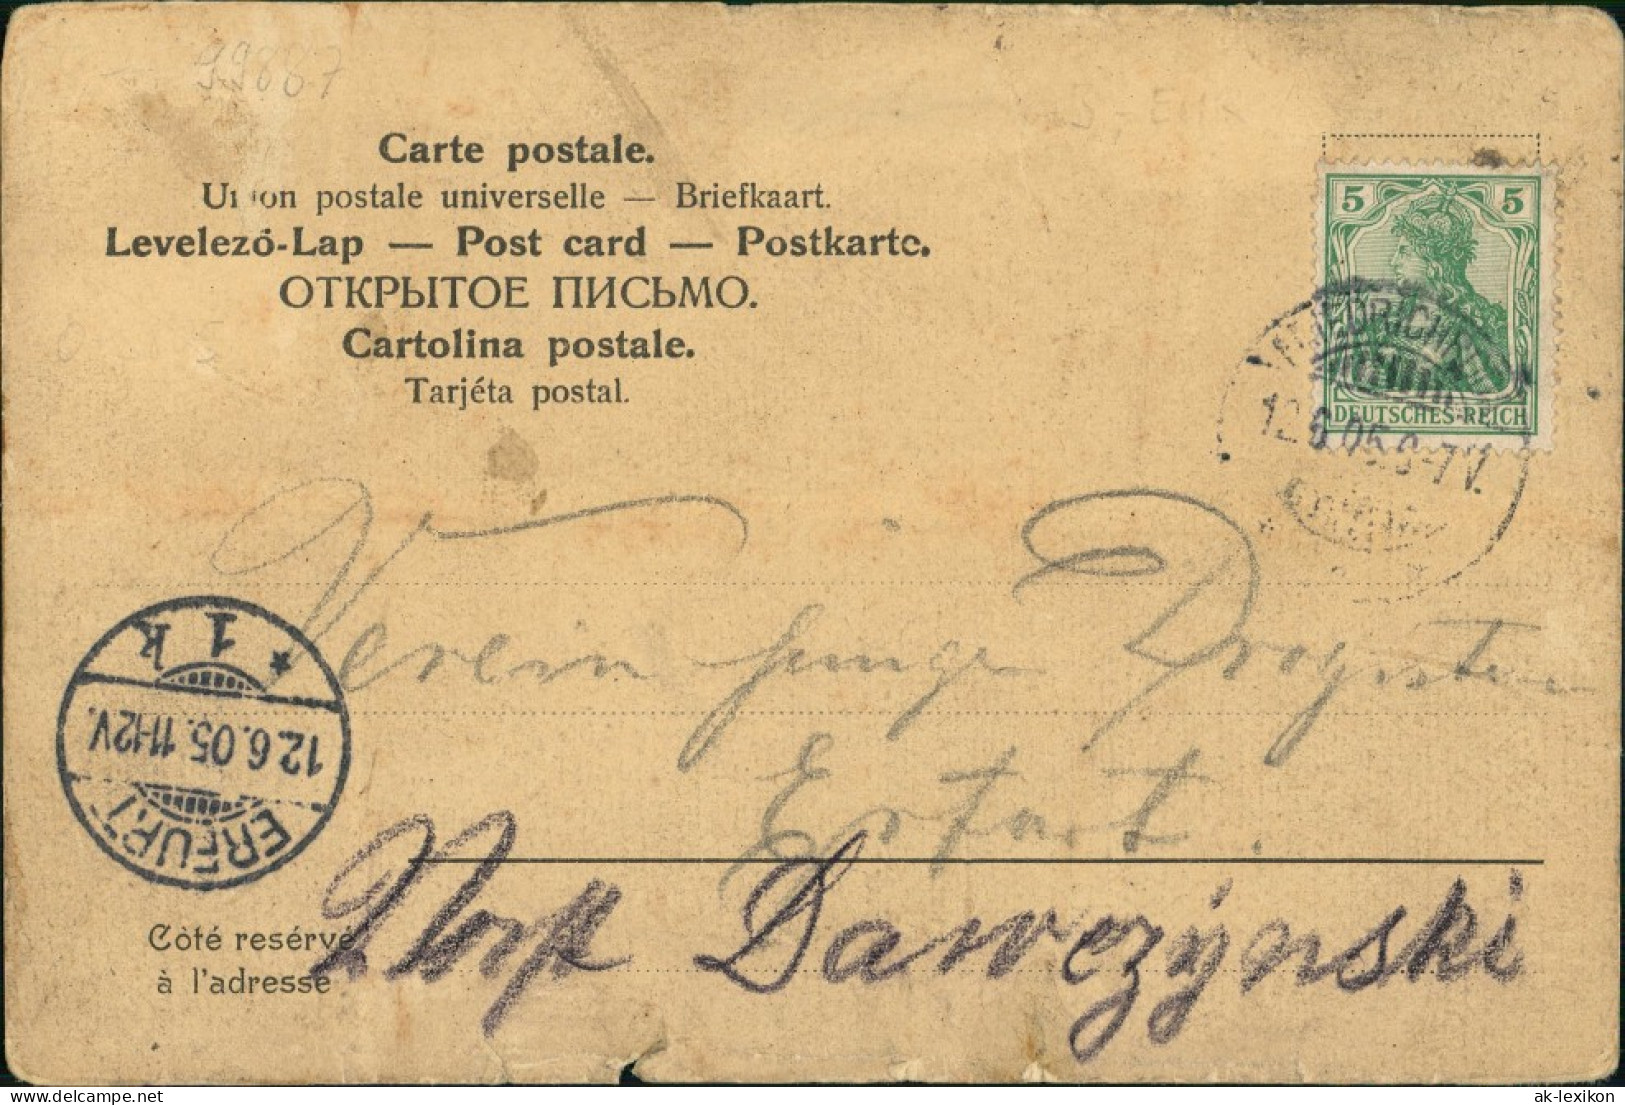 99867
Carte postale.
Union postale universelle — Briefkaart.
Levelező-Lap — Post card — Postkarte.
ОТКРЫТОЕ ПИСЬМО.
Cartolina postale.
Tarjéta postal.
5 5
DEUTSCHES REICH
12.6.05. 6-7 V.
Verein junge Drogisten
Erfurt.
* 1 k
12.6.05. 11-12V.
ERFURT
Dawczýnski
Côté resérvé
à l'adresse
delcampe.net
ak-lexikon